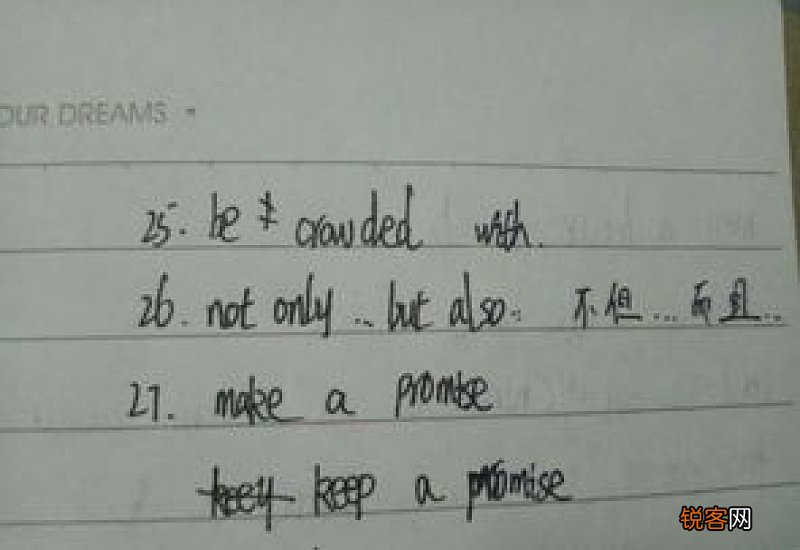 OUR DREAMS •
25. be crowded with.
26. not only... but also: 不但...而且...
27. make a promise
keep a promise
锐客网